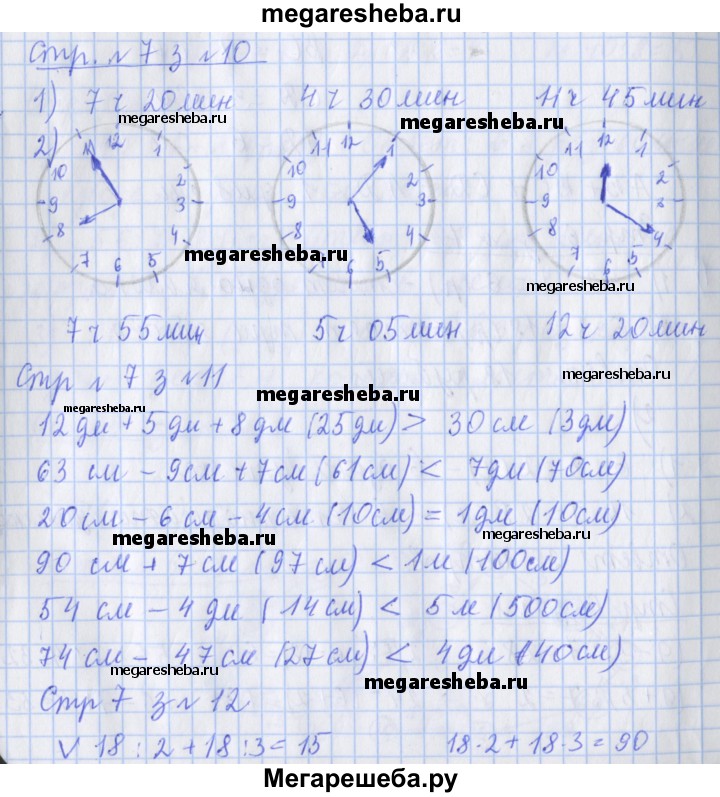 megaresheba.ru
Стр. № 7 з № 10
1) 7 ч 20 мин 4 ч 30 мин 11 ч 45 мин
megaresheba.ru megaresheba.ru megaresheba.ru
2)
11 12 1 2 3 4 5 6 7 8 9 10
11 12 1 2 3 4 5 6 7 8 9 10
11 12 1 2 3 4 5 6 7 8 9 10
megaresheba.ru
megaresheba.ru
7 ч 55 мин 5 ч 05 мин 12 ч 20 мин
Стр № 7 з № 11
megaresheba.ru
megaresheba.ru
megaresheba.ru
12 дм + 5 дм + 8 дм (25 дм) > 30 см (3 дм)
63 см - 9 см + 7 см (61 см) < 7 дм (70 см)
20 см - 6 см - 4 см (10 см) = 1 дм (10 см)
megaresheba.ru megaresheba.ru
90 см + 7 см (97 см) < 1 м (100 см)
54 см - 4 дм (14 см) < 5 м (500 см)
74 см - 47 см (27 см) < 4 дм (40 см)
megaresheba.ru
megaresheba.ru
Стр 7 з № 12
V 18 : 2 + 18 : 3 = 15 18 · 2 + 18 · 3 = 90
Мегарешеба.ру